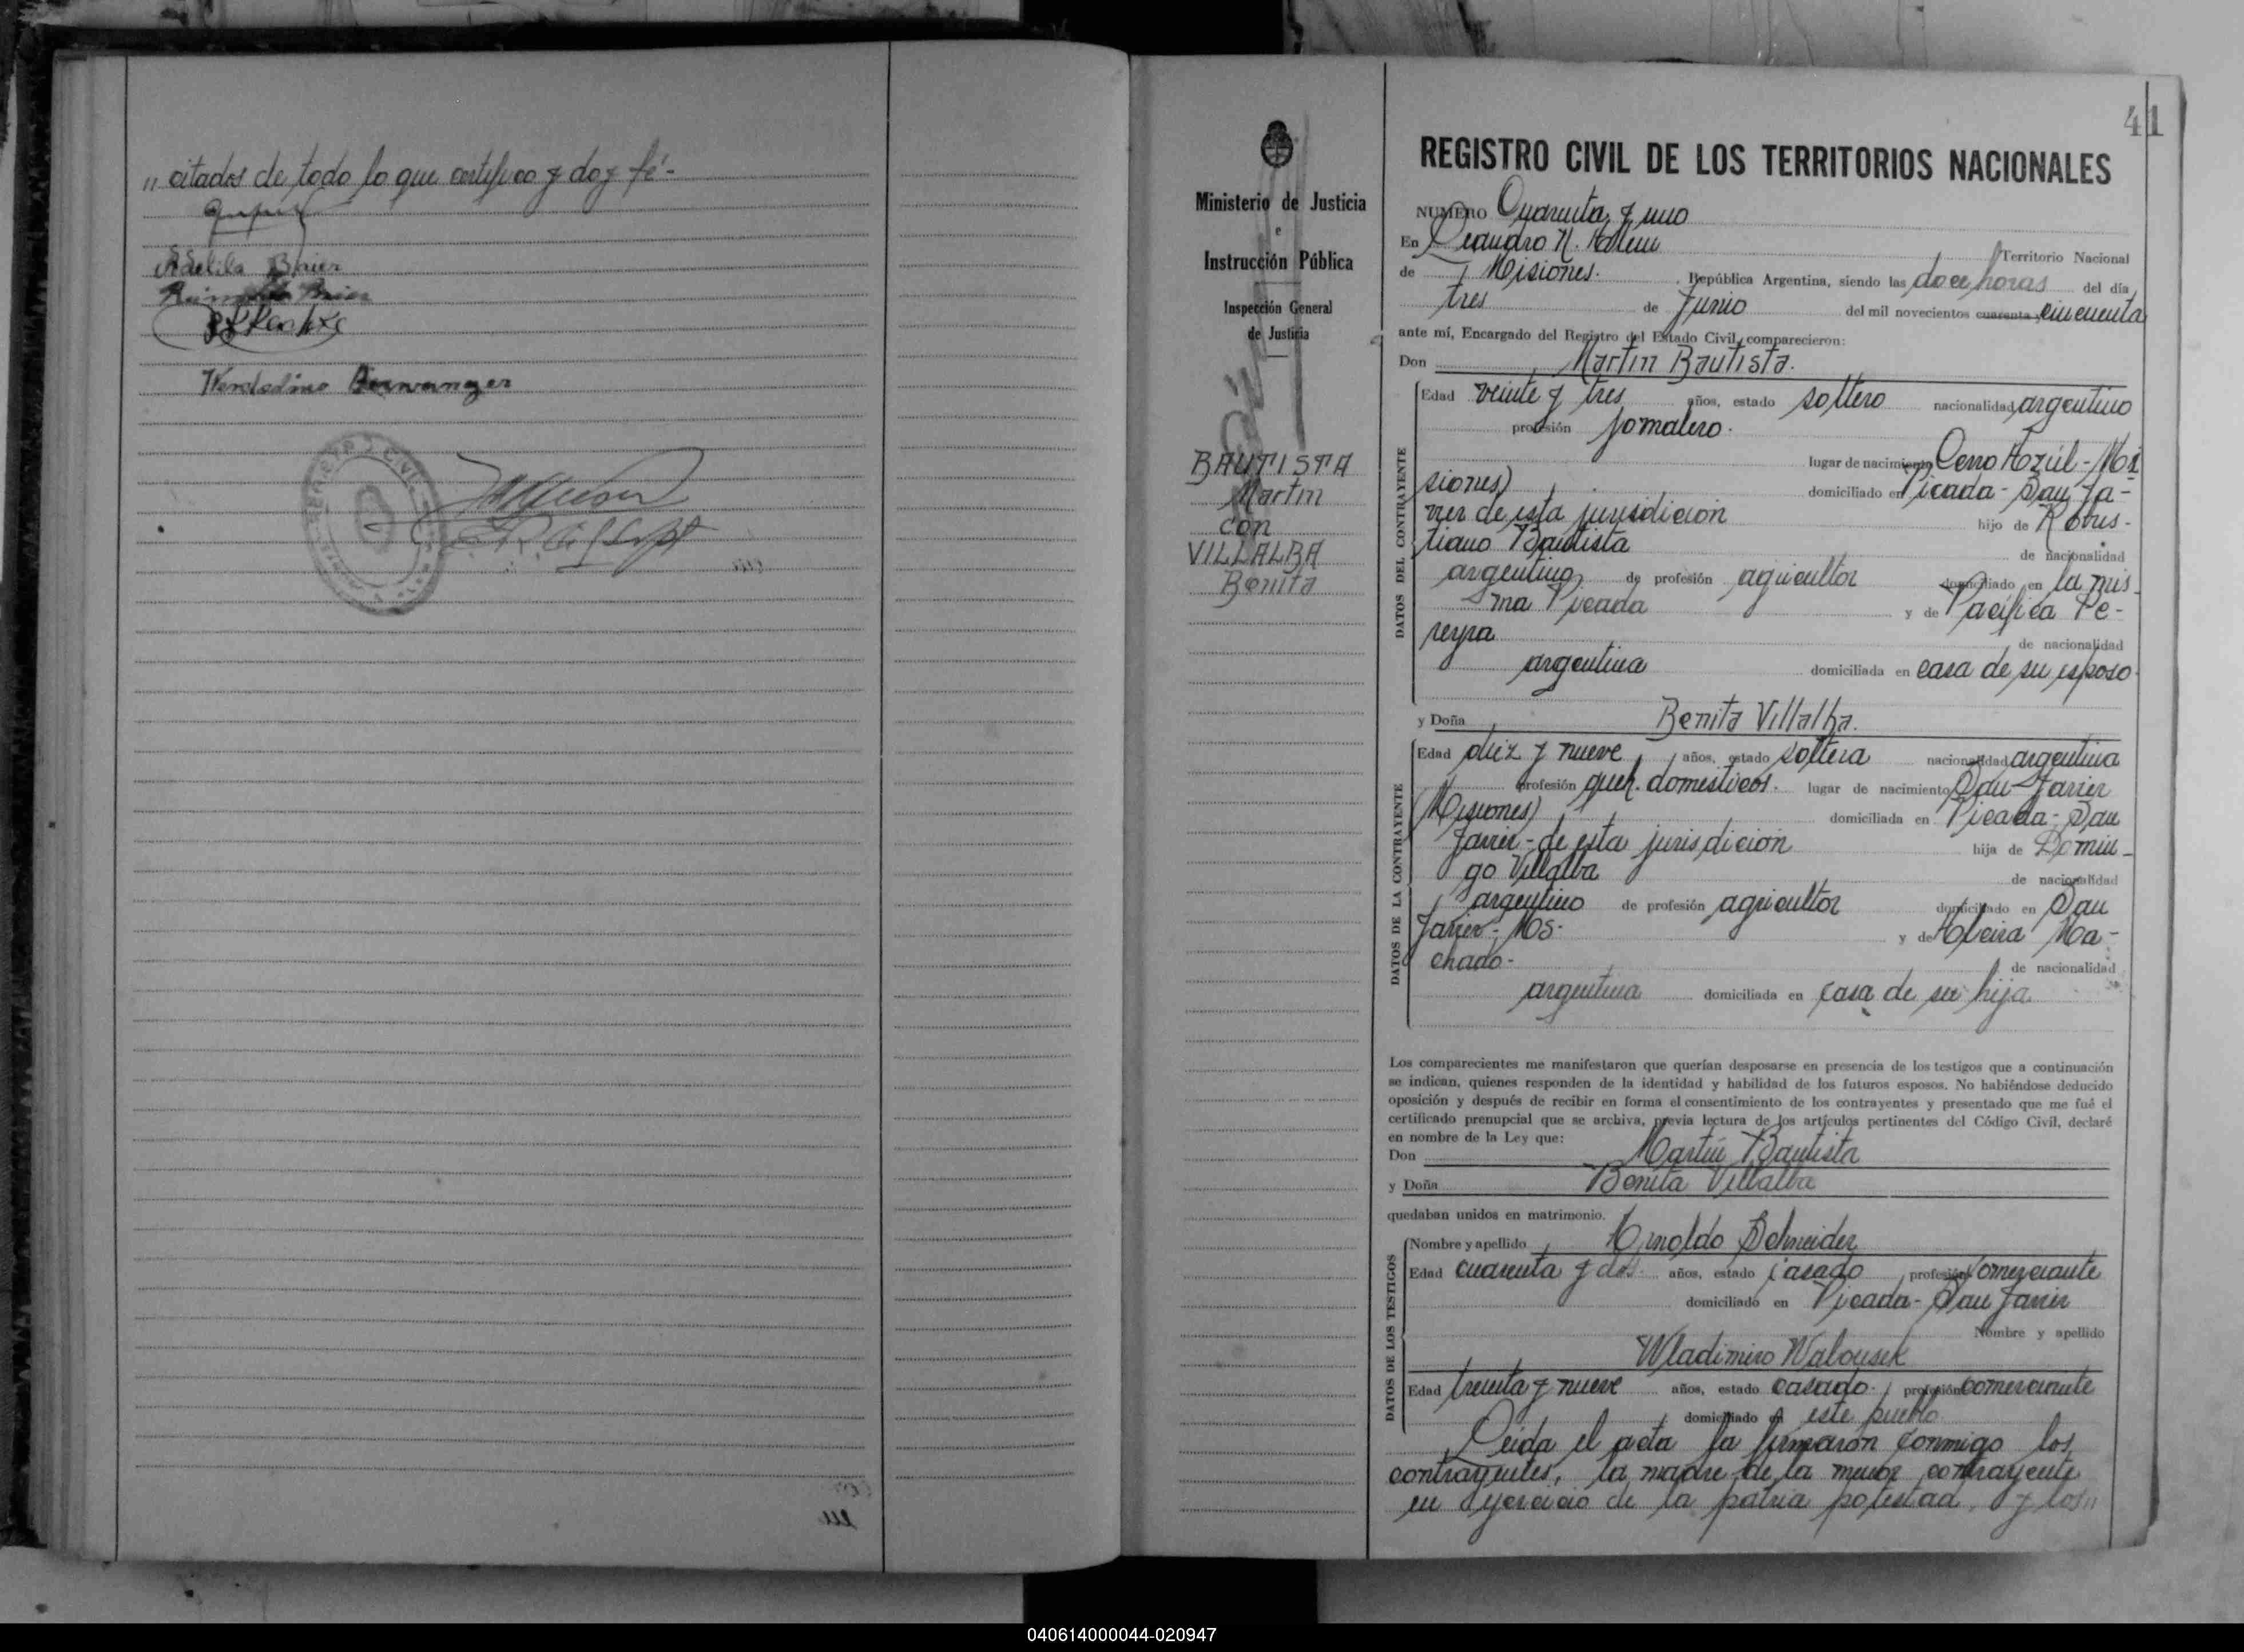 „ citados de todo lo que certifico y doy fé.-
Adelila Baier
41
Ministerio de Justicia
e
Instrucción Pública
Inspección General
de Justicia
BAUTISTA
Martin
con
VILLALBA
Benita
REGISTRO CIVIL DE LOS TERRITORIOS NACIONALES
NUMERO Cuarenta y uno
En Leandro N. Alem
Territorio Nacional
de Misiones. República Argentina, siendo las doce horas del día
tres de Junio del mil novecientos cuarenta y cincuenta
ante mí, Encargado del Registro del Estado Civil, comparecieron:
Don Martin Bautista.
DATOS DEL CONTRAYENTE
Edad veinte y tres años, estado soltero nacionalidad argentino
profesión jornalero.
lugar de nacimiento Cerro Azúl - Mi
siones) domiciliado en Picada - San Ja-
vier de esta jurisdicion hijo de Robus-
tiano Bautista de nacionalidad
argentino de profesión agricultor domiciliado en la mis-
ma Picada y de Pacifica Pe-
reyra de nacionalidad
argentina domiciliada en casa de su esposo
y Doña Benita Villalba.
DATOS DE LA CONTRAYENTE
Edad diez y nueve años, estado soltera nacionalidad argentina
profesión queh. domesticos. lugar de nacimiento San Javier
(Misiones) domiciliada en Picada - San
Javier - de esta jurisdicion hija de Domin-
go Villalba de nacionalidad
argentino de profesión agricultor domiciliado en San
Javier - Mos. y de Alveira Ma-
chado - de nacionalidad
argentina domiciliada en casa de su hija
Los comparecientes me manifestaron que querían desposarse en presencia de los testigos que a continuación
se indican, quienes responden de la identidad y habilidad de los futuros esposos. No habiéndose deducido
oposición y después de recibir en forma el consentimiento de los contrayentes y presentado que me fué el
certificado prenupcial que se archiva, previa lectura de los artículos pertinentes del Código Civil, declaré
en nombre de la Ley que:
Don Martín Bautista
y Doña Benita Villalba
quedaban unidos en matrimonio.
DATOS DE LOS TESTIGOS
Nombre y apellido Arnoldo Schneider
Edad cuarenta y dos años, estado casado profesión comerciante
domiciliado en Picada - San Javier
Nombre y apellido
Wladimiro Walousek
Edad treinta y nueve años, estado casado. profesión comerciante
domiciliado en este pueblo
Leida el acta la firmarón conmigo los
contrayentes, la madre de la menor contrayente
en ejercicio de la patria potestad, y los „
040614000044-020947